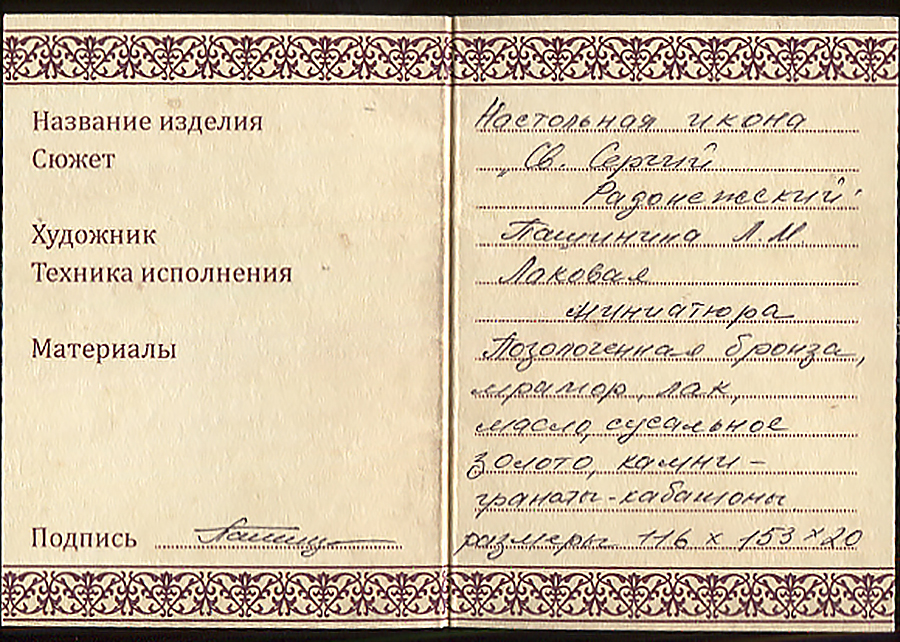 Название изделия
Настольная икона
Сюжет
„Св. Сергий
Радонежский"
Художник
Пашинина Л.М.
Техника исполнения
Лаковая
миниатюра
Материалы
Позолоченная бронза,
мрамор, лак,
масло, сусальное
золото, камни -
гранаты-кабашоны.
Подпись
размеры 116 x 153 x 20